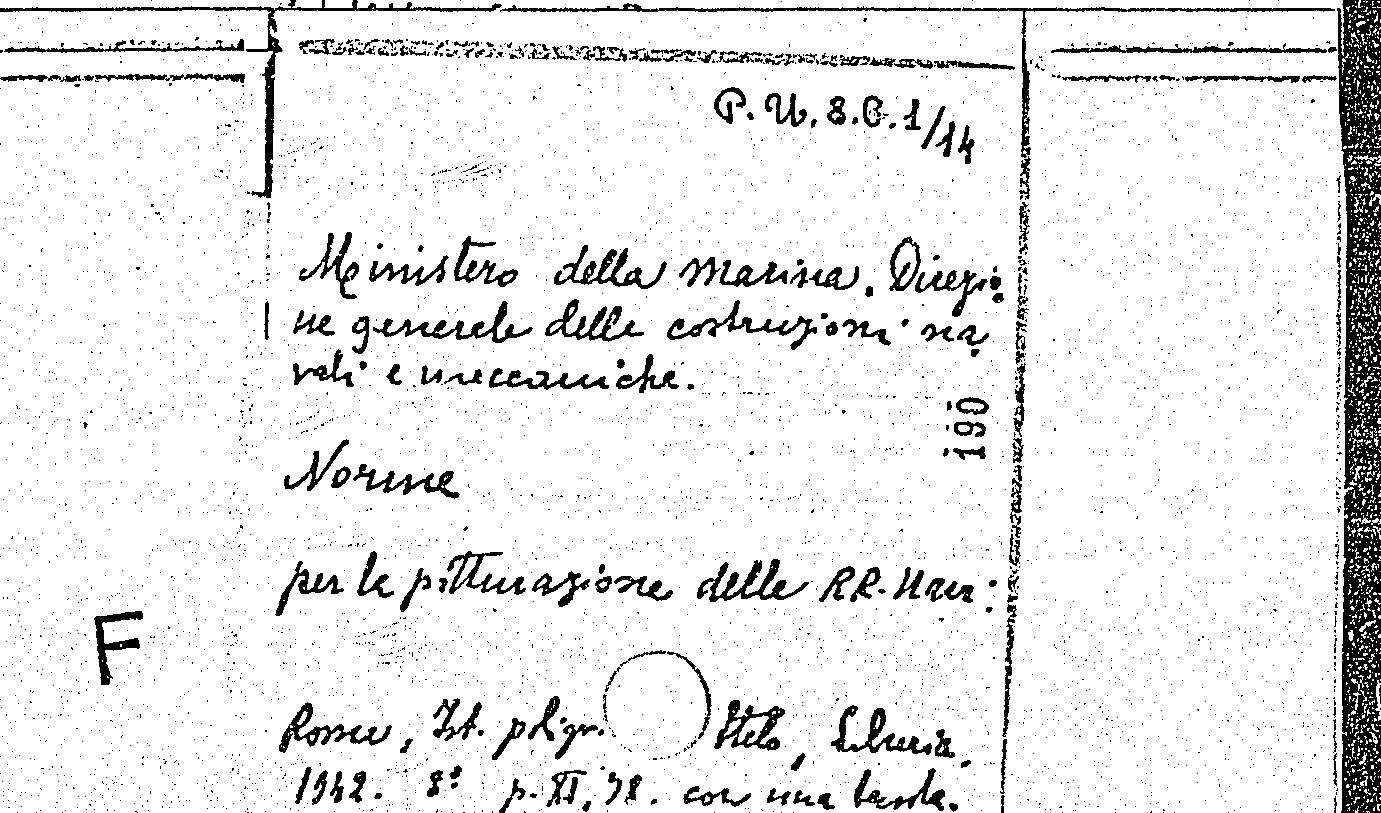 P. U. 8. C. 1/14
Ministero della Marina. Direzio-
ne generale delle costruzioni na-
vali e meccaniche.
190
Norme
per la pitturazione delle RR. Navi:
F
Roma, Ist. poligr. Stato, Libreria,
1942. 8° p. XI, 78. con una tavola.